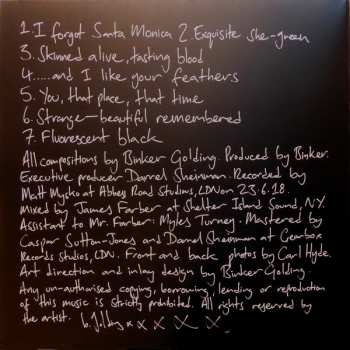 1. I forgot Santa Monica 2. Exquisite she-green
3. Skinned alive, tasting blood
4. .....and I like your feathers
5. You, that place, that time
6. Strange-beautiful remembered
7. Fluorescent black
All compositions by Binker Golding. Produced by Binker.
Executive producer Darrel Sheinman. Recorded by
Matt Mysko at Abbey Road Studios, LDN on 23.6.18.
Mixed by James Farber at Shelter Island Sound, NY.
Assistant to Mr. Farber: Myles Turney. Mastered by
Caspar Sutton-Jones and Darrel Sheinman at Gearbox
Records Studios, LDN. Front and back photos by Carl Hyde.
Art direction and inlay design by Binker Golding.
Any un-authorised copying, borrowing, lending or reproduction
of this music is strictly prohibited. All rights reserved by
the artist. b. Golding x x x x x.